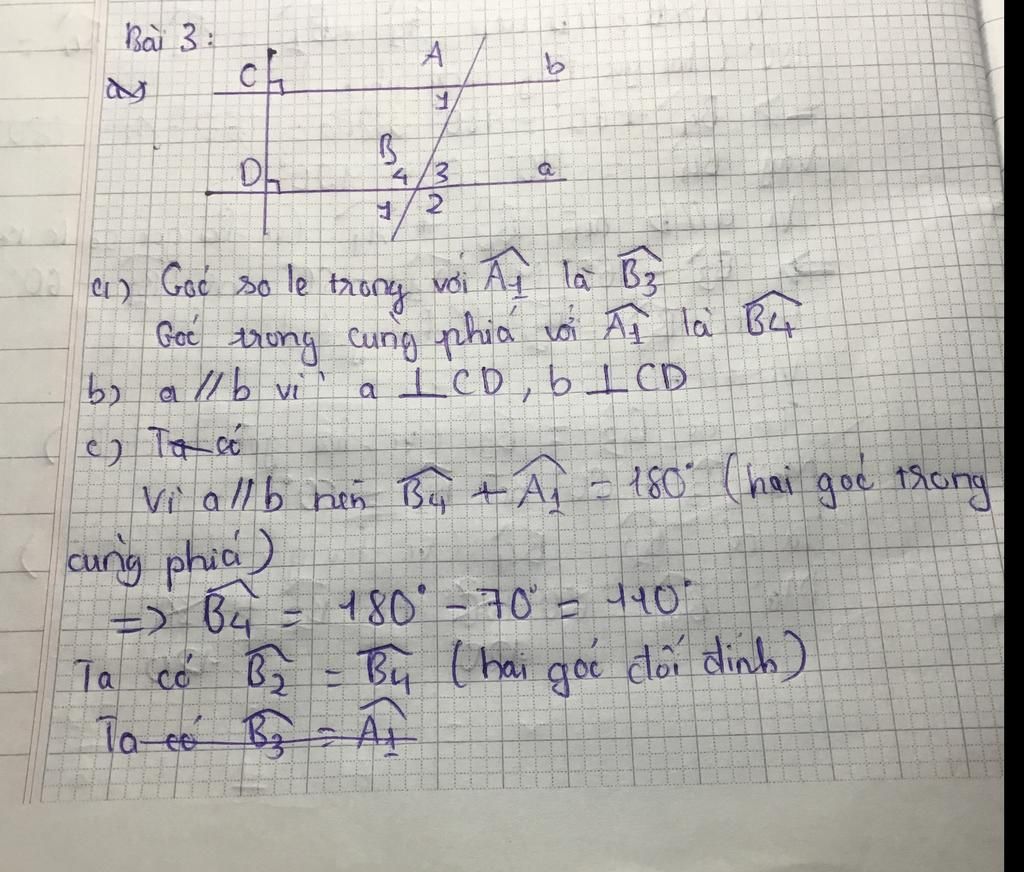 Bài 3:
a)
C A b
1
D B 4 3 a
1 2
a) Góc so le trong với A1 là B3
Góc trong cùng phía với A1 là B4
b) a // b vì a ⊥ CD, b ⊥ CD
c) Ta có
Vì a // b nên B4 + A1 = 180° (hai góc trong
cùng phía)
=> B4 = 180° - 70° = 110°
Ta có B2 = B4 (hai góc đối đỉnh)
Ta có B3 = A1